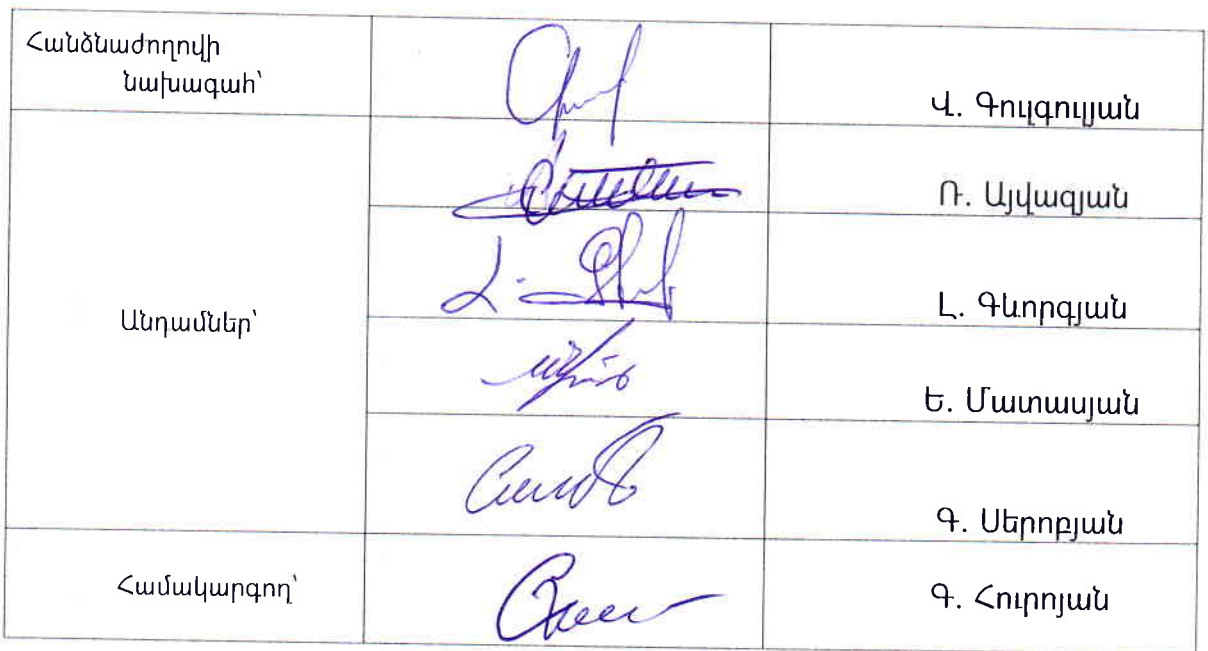 Հանձնաժողովի
նախագահ՝
Վ. Գուլգուլյան
Ռ. Այվազյան
Անդամներ՝
Լ. Գևորգյան
Ե. Մատասյան
Գ. Սերոբյան
Համակարգող՝
Գ. Հուրոյան